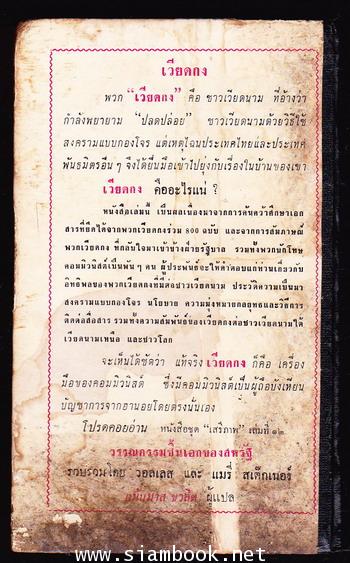 เวียดกง
พวก "เวียดกง" คือ ชาวเวียดนาม ที่อ้างว่า
กำลังพยายาม "ปลดปล่อย" ชาวเวียดนามด้วยวิธีใช้
สงครามแบบกองโจร แต่เหตุไฉนประเทศไทยและประเทศ
พันธมิตรอื่น ๆ จึงได้ยื่นมือเข้าไปยุ่งกับเรื่องในบ้านของเขา
เวียดกง คืออะไรแน่ ?
หนังสือเล่มนี้ เป็นผลเนื่องมาจากการค้นคว้าศึกษาเอก
สารที่ยึดได้จากพวกเวียดกงร่วม ๘๐๐ ฉบับ และจากการสัมภาษณ์
พวกเวียดกง ที่กลับใจมาเข้าข้างฝ่ายรัฐบาล รวมทั้งพวกนักโทษ
คอมมิวนิสต์เป็นพัน ๆ คน ผู้ประพันธ์จะให้คำตอบแก่ท่านเกี่ยวกับ
อิทธิพลของพวกเวียดกงที่มีต่อชาวเวียดนาม ประวัติความเป็นมา
สงครามแบบกองโจร นโยบาย ความมุ่งหมายกลยุทธและวิธีการ
ติดต่อสื่อสาร รวมทั้งความสัมพันธ์ของเวียดกงต่อชาวเวียดนามใต้
เวียดนามเหนือ และชาวโลก
จะเห็นได้ชัดว่า แท้จริง เวียดกง ก็คือ เครื่อง
มือของคอมมิวนิสต์ ซึ่งมีคอมมิวนิสต์เป็นผู้ถือบังเหียน
บัญชาการจากฮานอยโดยตรงนั่นเอง
โปรดคอยอ่าน หนังสือชุด "เสรีภาพ" เล่มที่ ๑๒
วรรณกรรมชั้นเอกของสหรัฐ
รวบรวมโดย วอลเลส และ แมรี่ สเต๊กเนอร์
ผู้แปล
www.siambook.net